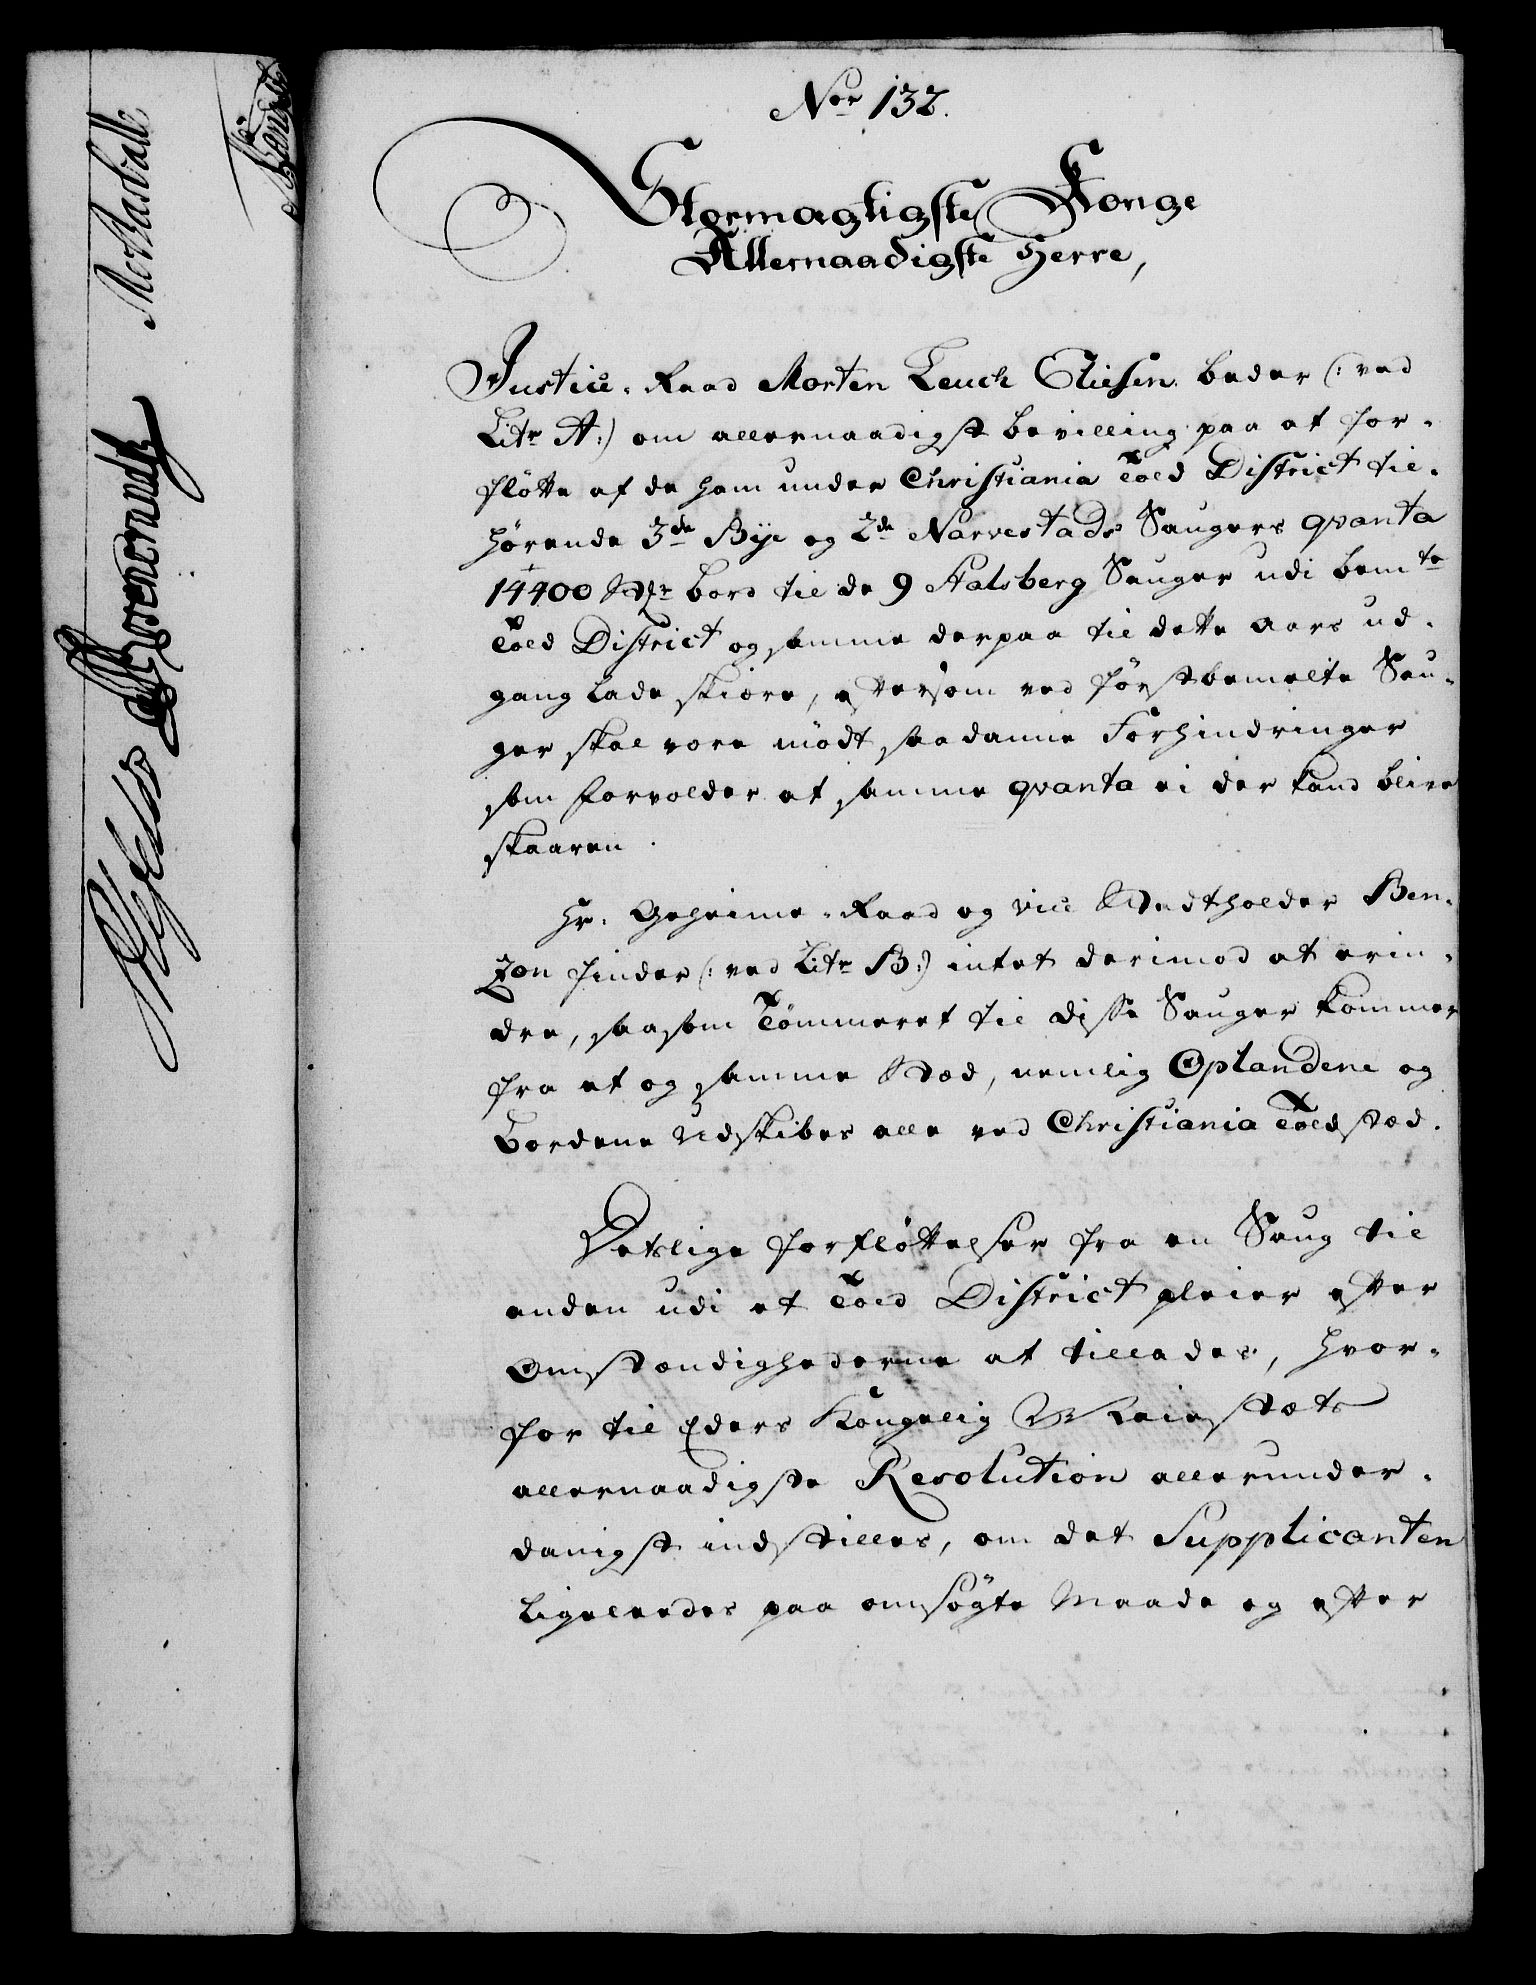 Nor 132.
Stormægtigste Konge
Allernaadigste Herre,
Justice-Raad Morten Leuch Eliesen beder (: ved
Litr A:) om allernaadigst bevilling paa at for-
fløtte af de ham under Christiania Told District til-
hørende 3de Bye og 2de Narvestads Saugers qvanta
14400 st bord til de 9 Stalsberg Sauger udi bemte
Told District og samme derpaa til dette aars ud-
gang lade skiære, eftersom ved førstbemelte Sau-
ger skal være mødt saadanne Forhindringer
som forvolder at samme qvanta ei der kand blive
skaaren.
Hr. Geheime-Raad og vice Stadtholder Ben-
zon finder (: ved Litr B:) intet derimod at erin-
dre, saasom Tømmeret til disse Sauger kommer
fra et og samme Stæd, nemlig Oplandene og
Bordene Udskibes alle ved Christiania Toldstæd.
Detslige forfløttelser fra en Saug til
anden udi et Told District pleier efter
Omstændighederne at tillades, hvor-
for til Eders Kongelig Maiestæts
allernaadigste Resolution allerunder-
danigst indstilles, om det Supplicanten
ligeleedes paa omsøgte Maade og efter